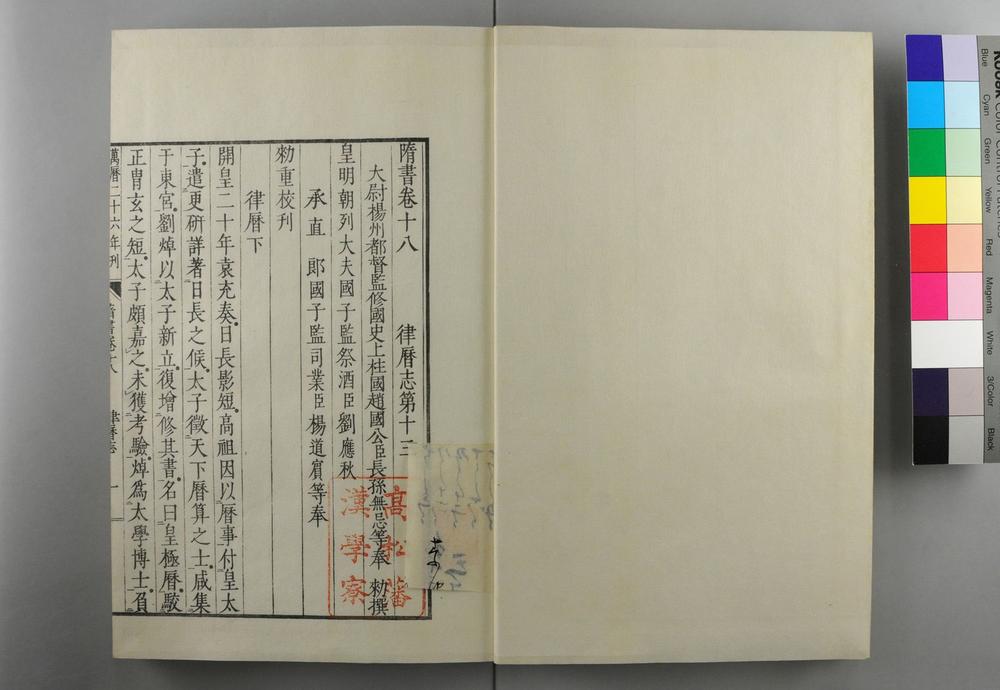 隋書卷十八　律曆志第十三
大尉楊州都督監修國史上柱國趙國公臣長孫無忌等奉　勑撰
皇明朝列大夫國子監祭酒臣劉應秋
承直郎國子監司業臣楊道賓等奉
勑重校刊
律曆下
開皇二十年袁充奏日長影短高祖因以曆事付皇太
子遣更硏詳著日長之候太子徵天下曆算之士咸集
于東宮劉焯以太子新立復增修其書名曰皇極曆駮
正胄玄之短太子頗嘉之未獲考驗焯爲太學博士負
萬曆二十六年刊　隋書卷十八　律曆志　一
高松藩
漢學寮
Blue
Cyan
Green
Yellow
Red
Magenta
White
3/Color
Black